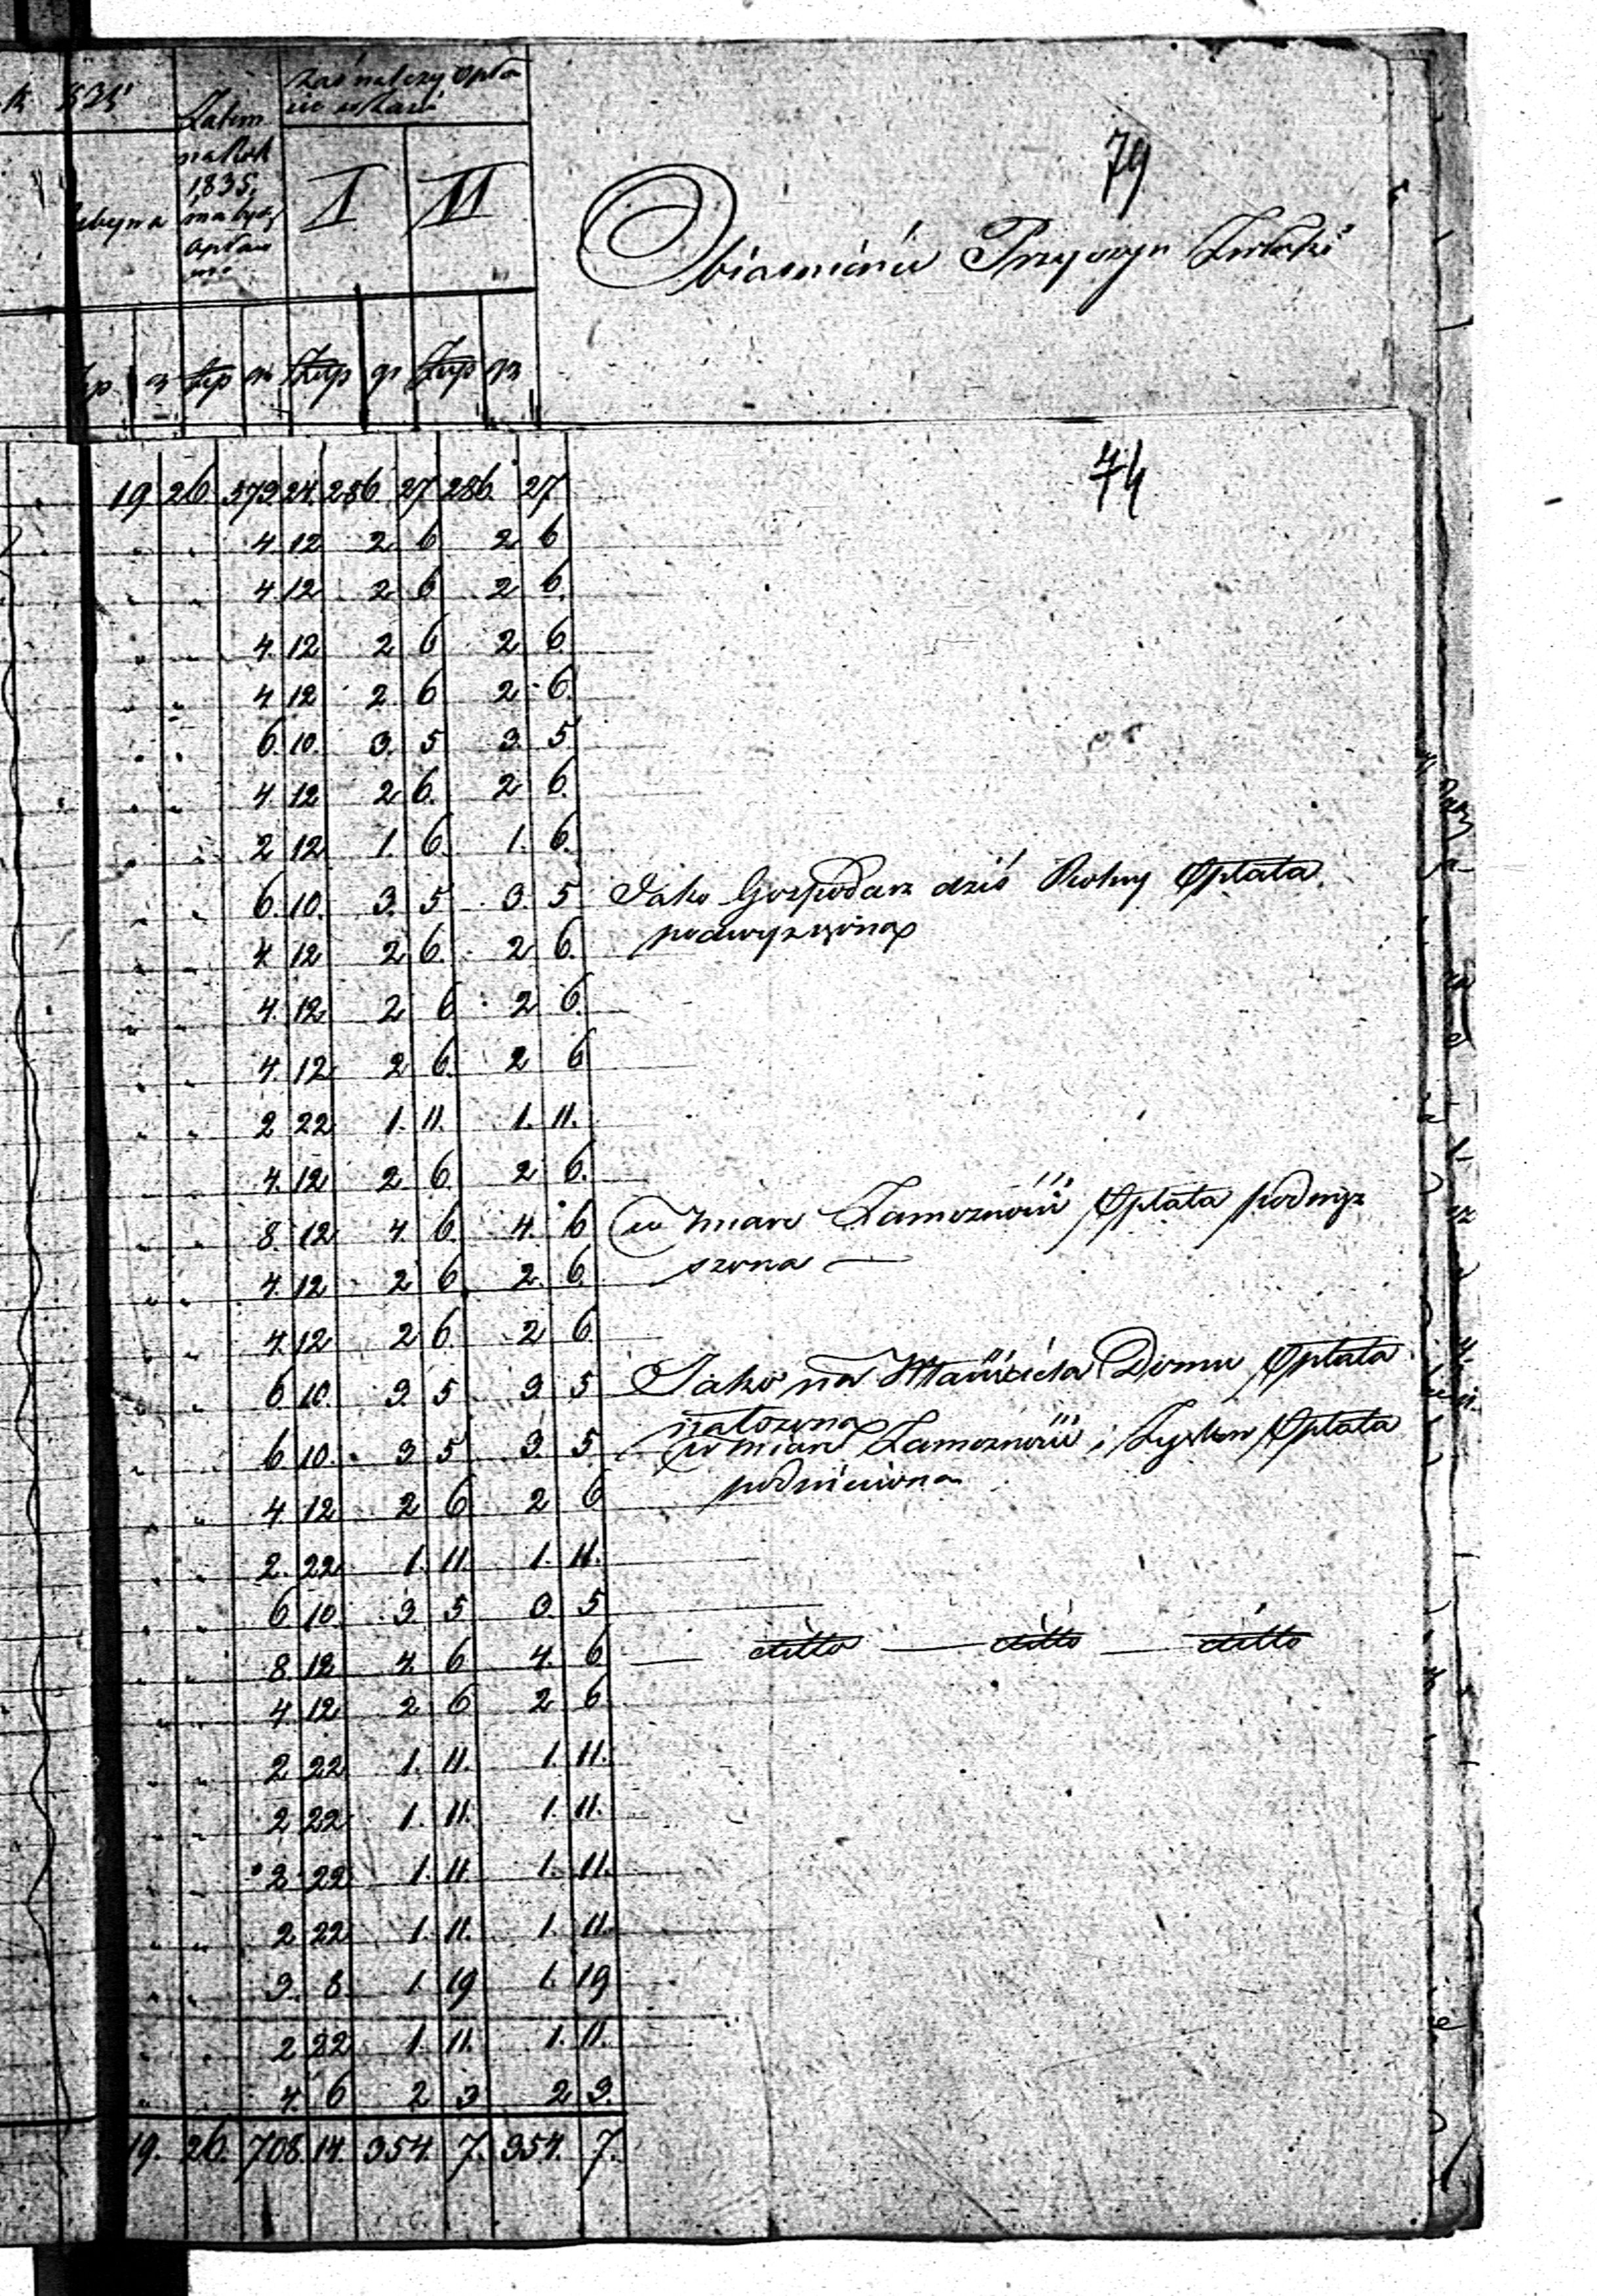 zaś należy opła
Zatem
na Rok
1835,
ma być
opłaco
no
I II
79
Obiasnienie Przyczyn
złp gr złp gr złp gr
74
19 26 573 24. 286. 27 286. 27
4. 12 2 6 2 6
4. 12 2 6 2 6.
4. 12 2 6 2 6
4 12 2 6 2 6.
6. 10. 3. 5 3. 5.
4. 12 2 6. 2 6.
2 12 1. 6. 1. 6.
6. 10. 3. 5 3. 5 Jako Gospodarz dziś Opłata
4 12 2 6. 2 6. podwyższona
4. 12 2 6 2 6.
4. 12 2 6. 2 6
2 22 1. 11. 1. 11.
4. 12 2 6. 2 6.
8. 12 4. 6. 4. 6 w miarę Zamożności Opłata podwyż
4. 12 2 6 2. 6. szona
4. 12 2 6. 2 6.
6. 10. 3 5 3. 5 Jako na Właściciela Domu Opłata
nałożona
6 10. 3 5 3. 5. w miarę Zamożności i Zysków Opłata
4 12 2 6 2 6 podniesiona
2. 22 1. 11. 1. 11.
6. 10. 3. 5 3. 5
8. 12 4 6 4. 6 ditto ditto ditto
4. 12 2 6 2 6
2 22 1. 11. 1. 11.
2 22 1. 11. 1. 11.
2 22 1. 11. 1. 11.
2 22 1. 11. 1. 11.
3. 8 1. 19 1. 19
2 22 1. 11. 1. 11.
4. 6 2 3 2 3.
19. 26. 708. 14. 354. 7. 354. 7.